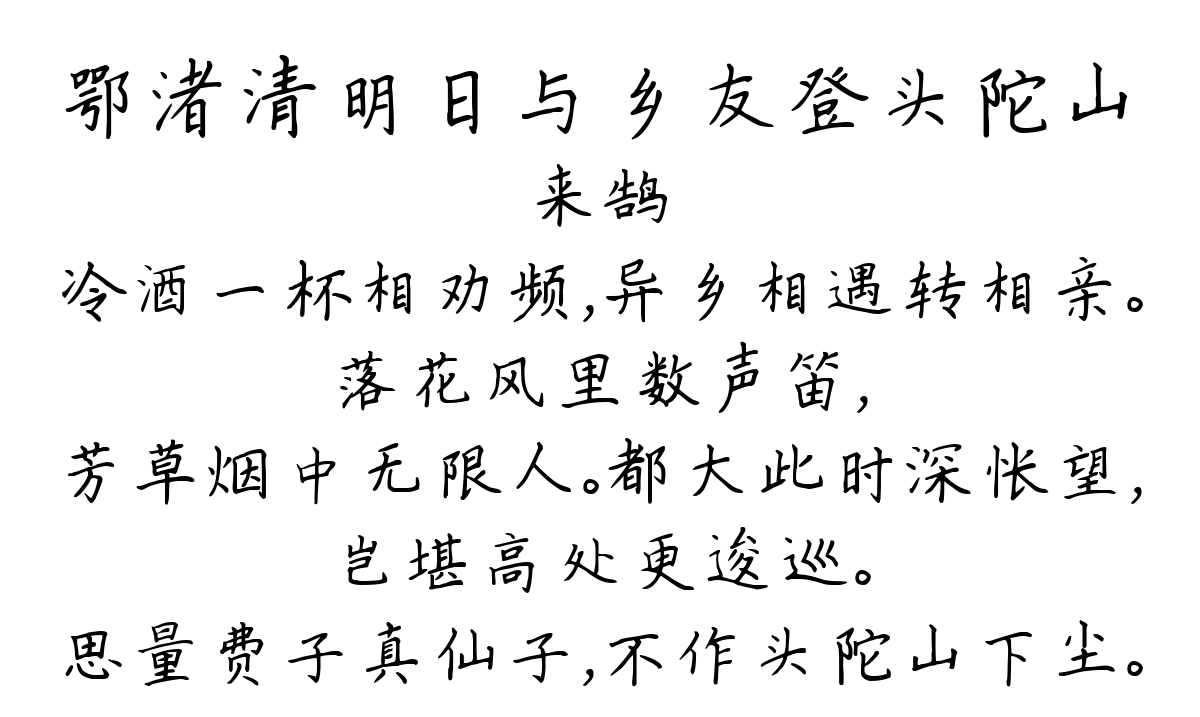 鄂渚清明日与乡友登头陀山
来鹄
冷酒一杯相劝频,异乡相遇转相亲。
落花风里数声笛,
芳草烟中无限人。都大此时深怅望,
岂堪高处更逡巡。
思量费子真仙子,不作头陀山下尘。